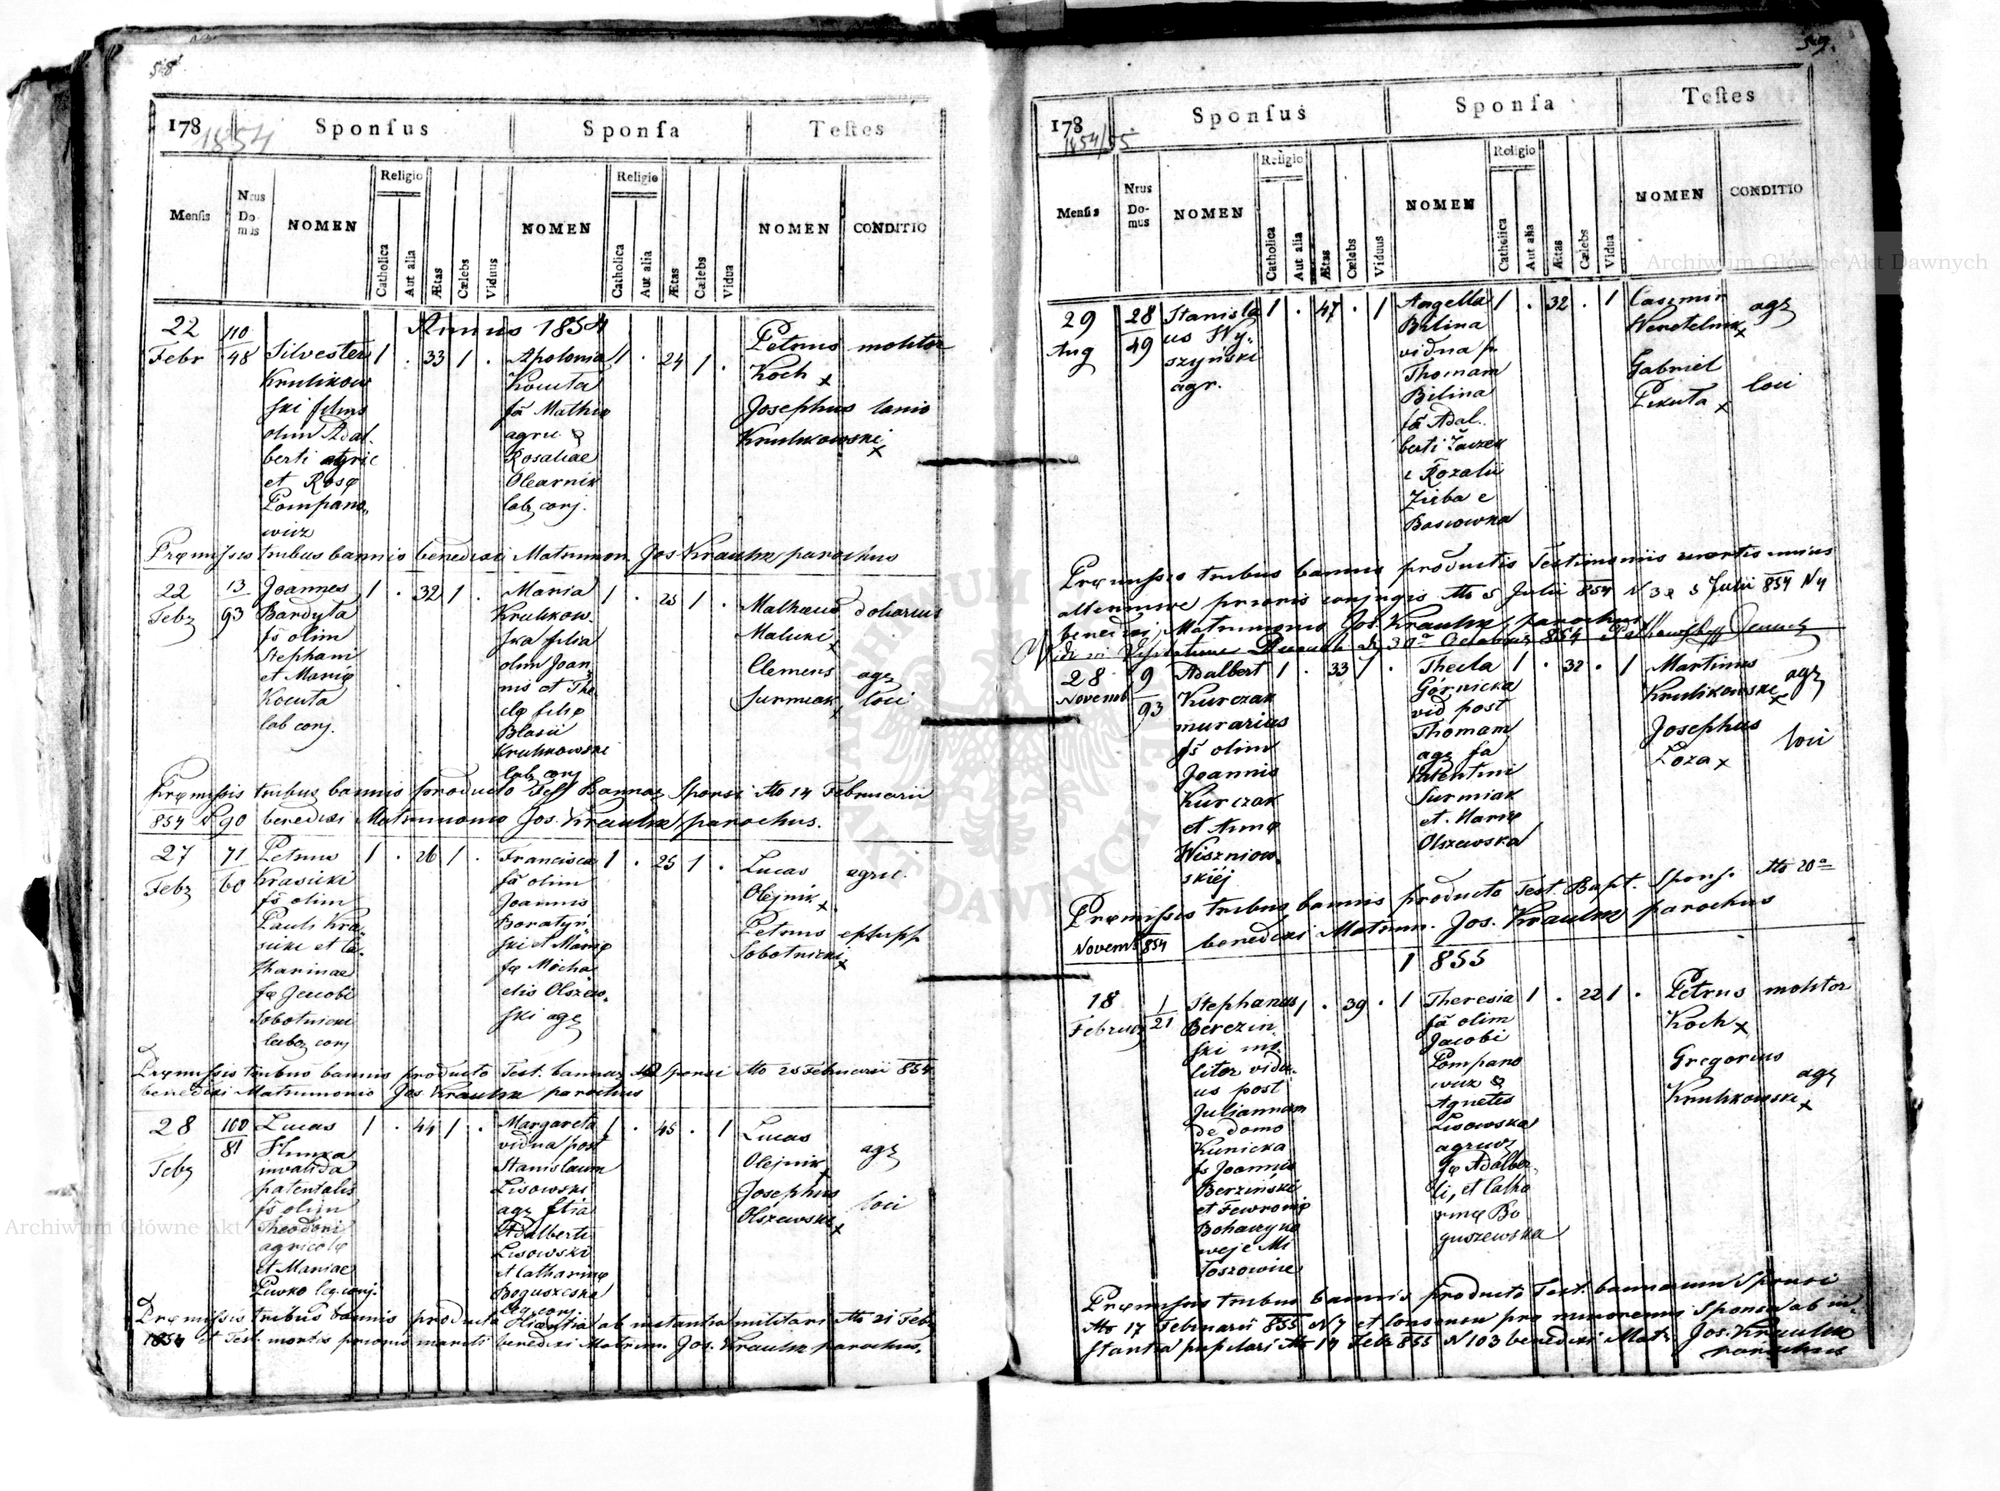 58
178
1854
Sponsus
Sponsa
Testes
Mensis
Nrus Domus
NOMEN
Religio
Catholica
Aut alia
Ætas
Cælebs
Viduus
NOMEN
Religio
Catholica
Aut alia
Ætas
Cælebs
Vidua
NOMEN
CONDITIO
Annus 1854
22
Febr
110
48
Silvester
Krulikow
ski filius
olim Adal.
berti agric
et Rosę
Pompano„
wicz
1 . 33 1 .
Apolonia
Kocuta
fa Mathię
agric &
Rosaliae
Olearnik
lab conj.
1 . 24 1 .
Petrus
Koch x
molitor
Josephus
Krulikowski
x
lanio
Pręmissis tribus bannis benedixi Matrimon Jos Kraulik parochus
22
Febr
13
93
Joannes
Bardyta
fs olim
Stephani
et Marię
Kocuta
lab conj.
1 . 32 1 .
Maria
Krulikow.
ska filia
olim Joan
nis et The
clę filię
Blasii
Krulikowski
lab conj
1 . 28 1 .
Mathaeus
Malicki
x
doliarius
Clemens
Surmiak
x
agr
loci
Pręmissis tribus bannis producto Test Bannar Sponsi Ao 14 Februarii
854 N 90 benedixi Matrimonio Jos. Kraulik parochus.
27
Febr
71
60
Petrus
Krasicki
fs olim
Pauli Kra„
sicki et Ca„
tharinae
fę Jacobi
Sobotnicki
labor conj
1 . 26 1 .
Francisca
fa olim
Joannis
Boratyń„
ski et Marię
fę Micha
elis Olszew„
ski agr
1 . 25 1 .
Lucas
Olejnik x
agric.
Petrus
Sobotnicki
x
Pręmissis tribus bannis producto Test. bannar Sponsi Ao 25 Februarii 854
benedixi Matrimonio Jos. Kraulik parochus
28
Febr
100
81
Lucas
invalida
patentalis
fs olim
Theodori
agricolę
et Mariae
Piwko leg. conj.
1 . 44 1 .
Margareta
vidua post
Stanislaum
Lisowski
agr filia
Adalberti
Lisowski
et Catharinę
Boguszeska
leg conj.
1 . 45 . 1
Lucas
Olejnik
x
agr
Josephus
Olszewski
x
loci
Pręmissis tribus bannis producta licentia ab instantia militari Ao 21 Febr
1854 et Test. mortis prioris mariti benedixi Matrim. Jos. Kraulik parochus.
59.
178
1854/55
Sponsus
Sponsa
Testes
Mensis
Nrus Domus
NOMEN
Religio
Catholica
Aut alia
Ætas
Cælebs
Viduus
NOMEN
Religio
Catholica
Aut alia
Ætas
Cælebs
Vidua
NOMEN
CONDITIO
29
Aug
28
49
Stanisla
us Wy„
szyński
agr.
1 . 47 . 1
Angella
Bilina
vidua p.
Thomam
Bilina
fa Adal„
berti
Rozalii
Zieba e
Bosiowka
1 . 32 . 1
Casimir
x
agr
Gabriel
Pikuta x
loci
Pręmissis tribus bannis productis Testimoniis mortis unius
alteriusve prioris conjugis Ao 5 Julii 854 N 3 & 5 Julii 854 N 4
benedixi Matrimonio Jos. Kraulik parochus
Vidi in Visitatione Decanali d. 30a Octobris 854
28
Novemb
9
93
Adalbert
Kurczak
murarius
fs olim
Joannis
Kurczak
et Annę
Wiszniow„
skiéj
1 . 33 1 .
Thecla
Górnicka
vid post
Thomam
agr fa
Valentini
Surmiak
et Marię
Olszewska
1 . 32 . 1
Martinus
Krulikowski
x
agr
Josephus
Loza x
loci
Pręmissis tribus bannis producto Test. Bapt. Sponsę Ao 20a
Novemb 854 benedixi Matrim. Jos. Kraulik parochus
1855
18
Februar
1
21
Stephanus
Berezin
ski mo„
litor vidu„
us post
Juliannam
de domo
Kunicka
fs Joannis
Berziński
et Fewronię
Bohaczyno
weje Mi
Toszowice
1 . 39 . 1
Theresia
fa olim
Jacobi
Pompano
wicz &
Agnetis
Lisowska
agricol
fę Adalber„
ti, et Catha
rinę Bo
guszewska
1 . 22 1 .
Petrus
Koch x
molitor
Gregorius
Krulikowski
x
agr
Pręmissis tribus bannis producto Test. bannorum Sponsi
Ao 17 Februarii 855 N 7 et Consensu pro minorenni Sponsa ab in„
stantia pupilari Ao 14 Febr 855 N 103 benedixi Matr Jos. Kraulik
parochus
Archiwum Główne Akt Dawnych
Archiwum Główne Akt
ARCHIWUM GŁÓWNE AKT DAWNYCH